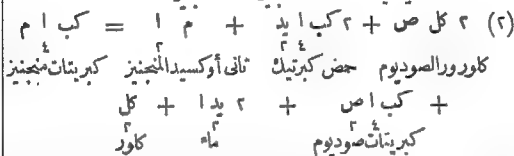 (٢) ٢ كل ص + ٢ كب ا٤ يد٢ + م ا٢ = كب ا٤ م
كلورورالصوديوم حمض كبرتيك ثانى أوكسيدالمنجنيز كبريتات منجنيز
+ كب ا٤ ص٢ + ٢ يد٢ ا + كل٢
كبريتات صوديوم ماء كلور